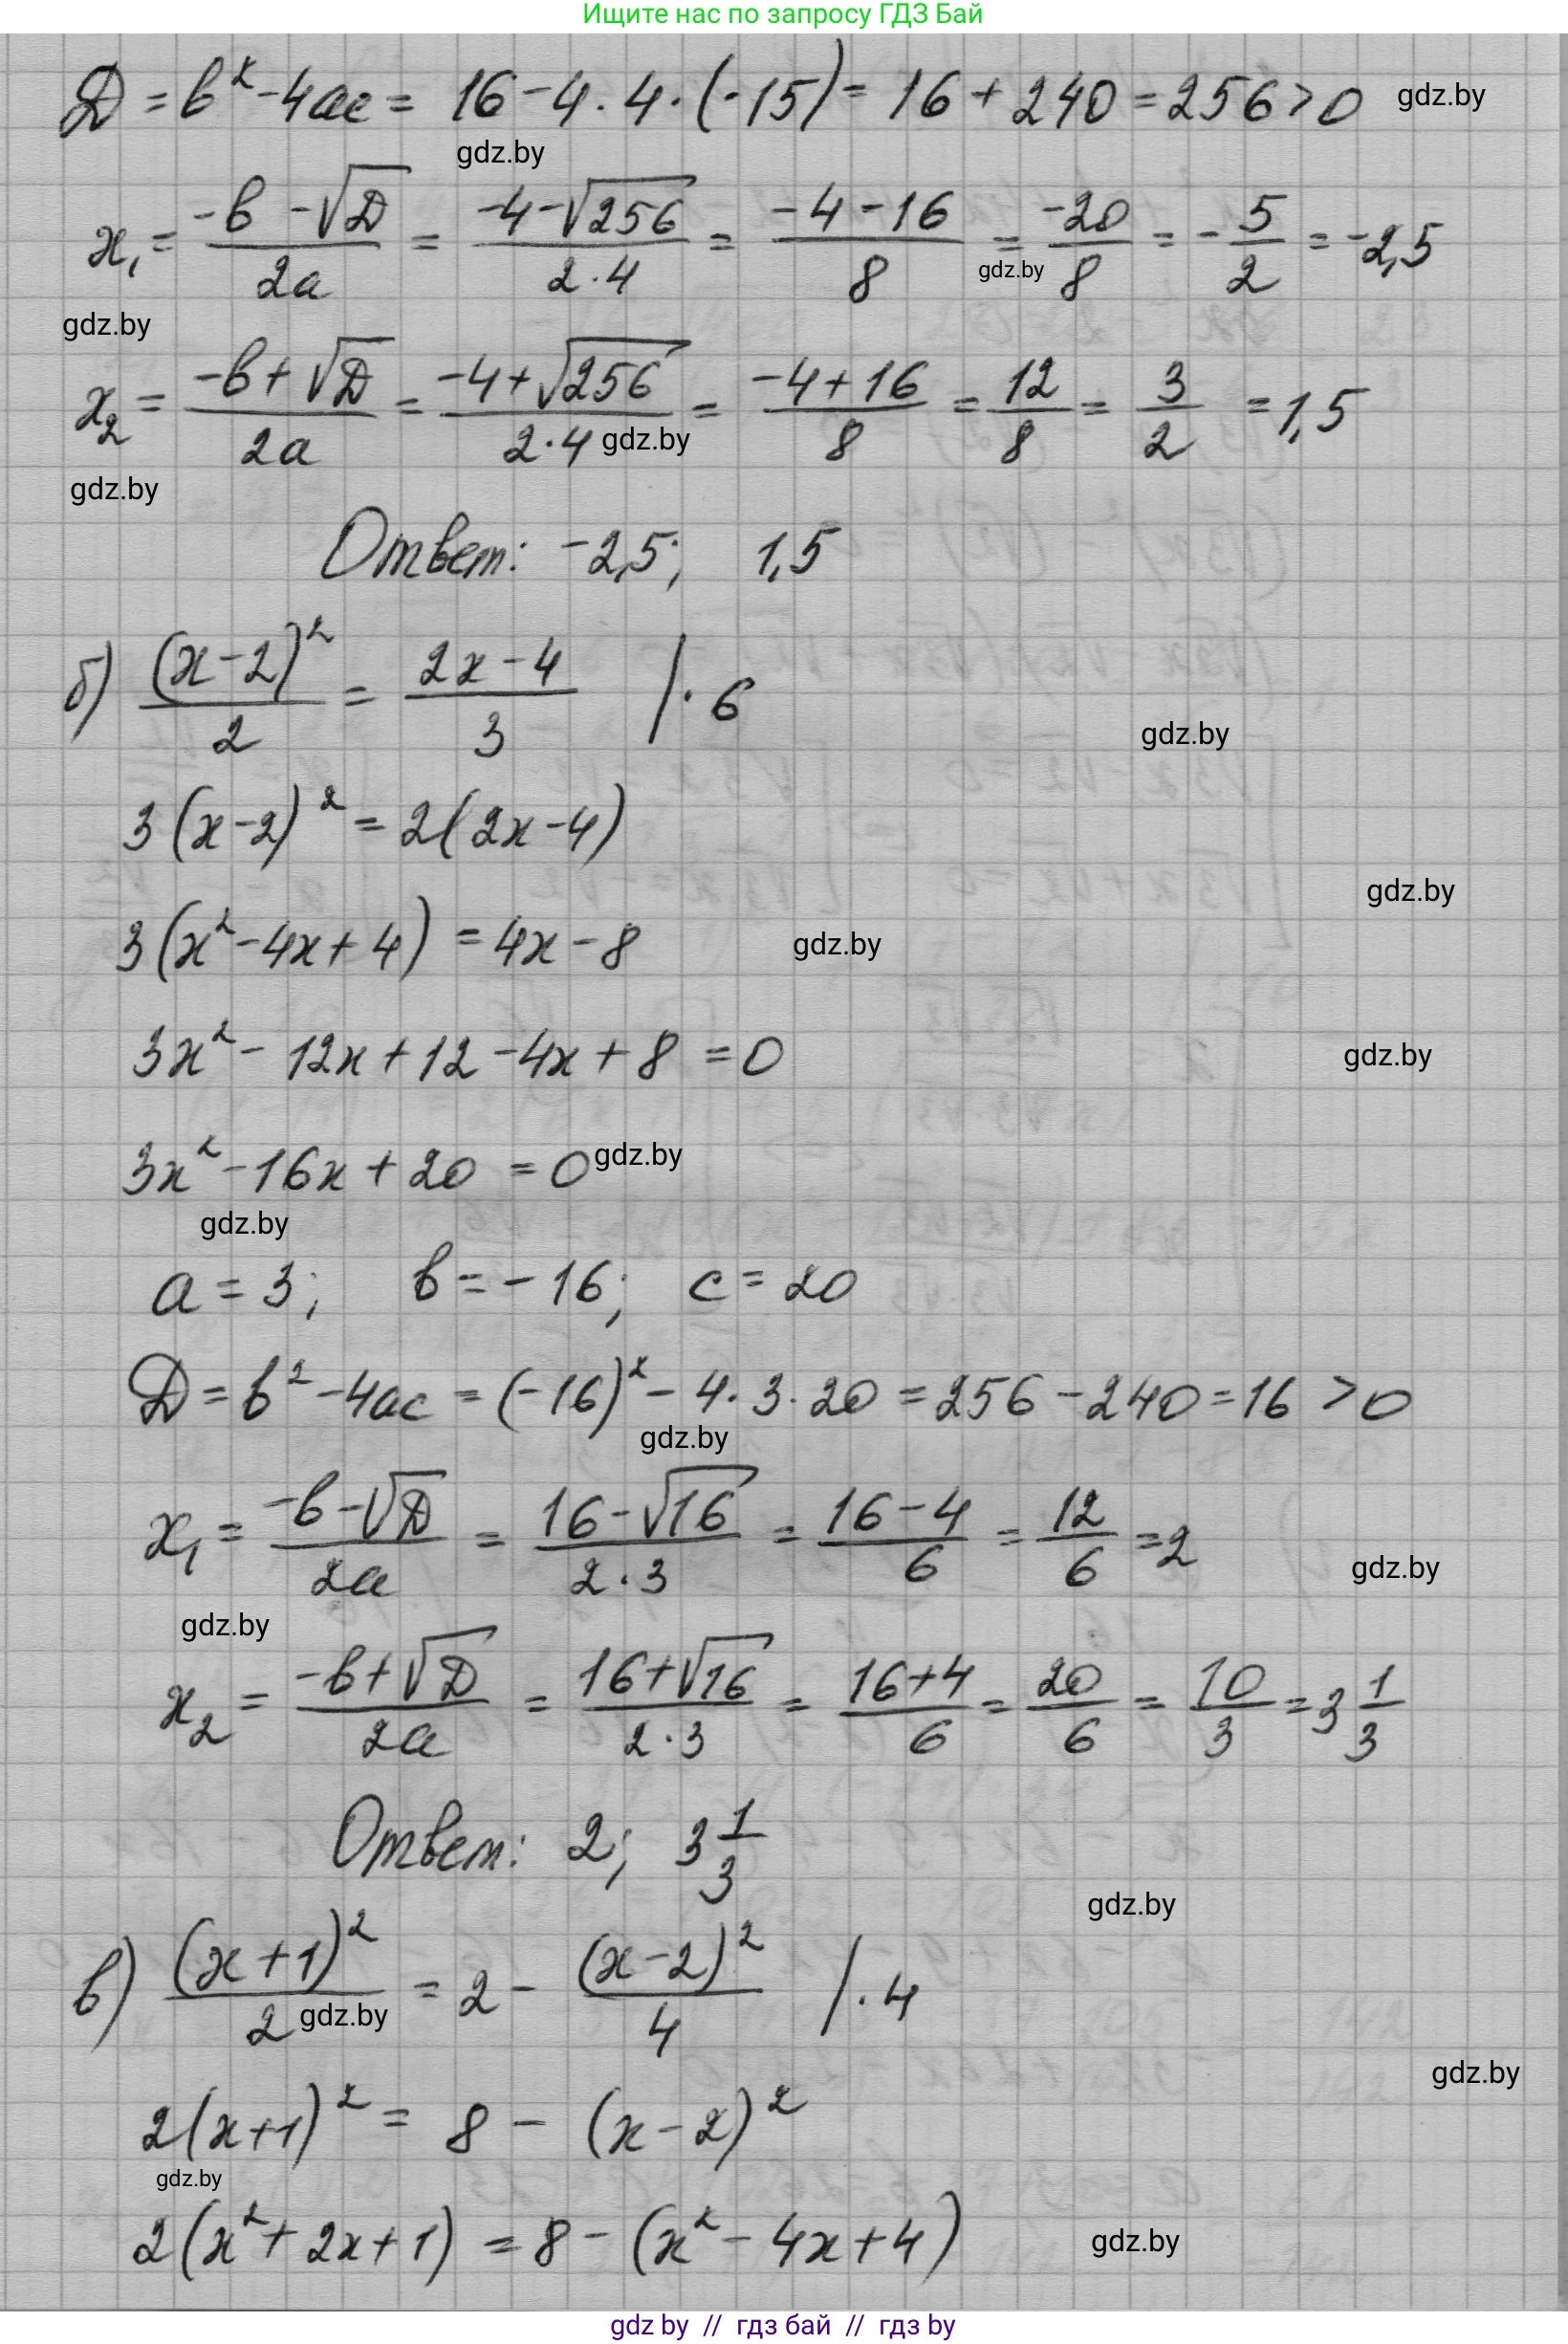 Ищите нас по запросу ГДЗ Бай
Д = b² - 4ac = 16 - 4 · 4 · (-15) = 16 + 240 = 256 > 0 gdz.by
gdz.by
x₁ = (-b - √Д)/(2a) = (-4 - √256)/(2·4) = (-4 - 16)/8 = -20/8 = -5/2 = -2,5
gdz.by
gdz.by
x₂ = (-b + √Д)/(2a) = (-4 + √256)/(2·4) = (-4 + 16)/8 = 12/8 = 3/2 = 1,5
gdz.by
gdz.by
Ответ: -2,5; 1,5
б) (x-2)²/2 = (2x-4)/3 /· 6
gdz.by
3(x-2)² = 2(2x-4)
gdz.by
3(x² - 4x + 4) = 4x - 8 gdz.by
3x² - 12x + 12 - 4x + 8 = 0 gdz.by
3x² - 16x + 20 = 0 gdz.by
gdz.by
a = 3; b = -16; c = 20
Д = b² - 4ac = (-16)² - 4 · 3 · 20 = 256 - 240 = 16 > 0
gdz.by
x₁ = (-b - √Д)/(2a) = (16 - √16)/(2·3) = (16 - 4)/6 = 12/6 = 2
gdz.by
gdz.by
x₂ = (-b + √Д)/(2a) = (16 + √16)/(2·3) = (16 + 4)/6 = 20/6 = 10/3 = 3 1/3
Ответ: 2; 3 1/3
gdz.by
в) (x+1)²/2 = 2 - (x-2)²/4 /· 4
gdz.by
gdz.by
2(x+1)² = 8 - (x-2)²
gdz.by
2(x² + 2x + 1) = 8 - (x² - 4x + 4) gdz.by
gdz by // гдз бай // гдз by